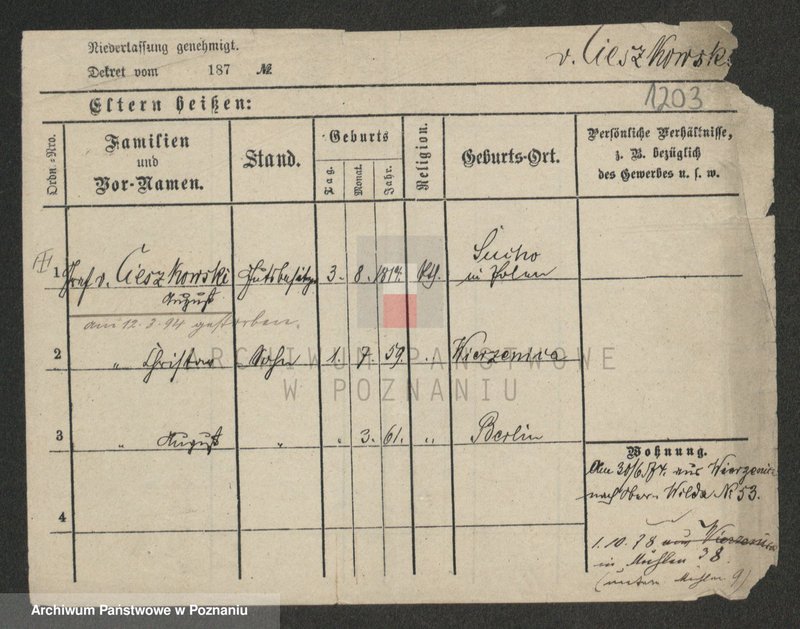 Niederlassung genehmigt.
Dekret vom 187 №
v. Cieszkowski
1203
Eltern heißen:
Ordn.-Nro.
Familien
und
Vor-Namen.
Stand.
Geburts
Tag.
Monat.
Jahr.
Religion.
Geburts-Ort.
Persönliche Verhältnisse,
z. B. bezüglich
des Gewerbes u. s. w.
1 Graf v. Cieszkowski Gutsbesitzer 3. 8. 1814. Kth. Sucho
in Polen
August
am 12.3.94 gestorben.
2 " Sohn 1. 7. 59. " Wierzenica
3 " August " " 3. 61. " Berlin
4
Wohnung.
Am 30/6 74. aus Wierzenica
nach Ober- Wilda № 53.
1.10.78 aus Wierzenica
in Mühlen 38
9)
ARCHIWUM PAŃSTWOWE
W POZNANIU
Archiwum Państwowe w Poznaniu